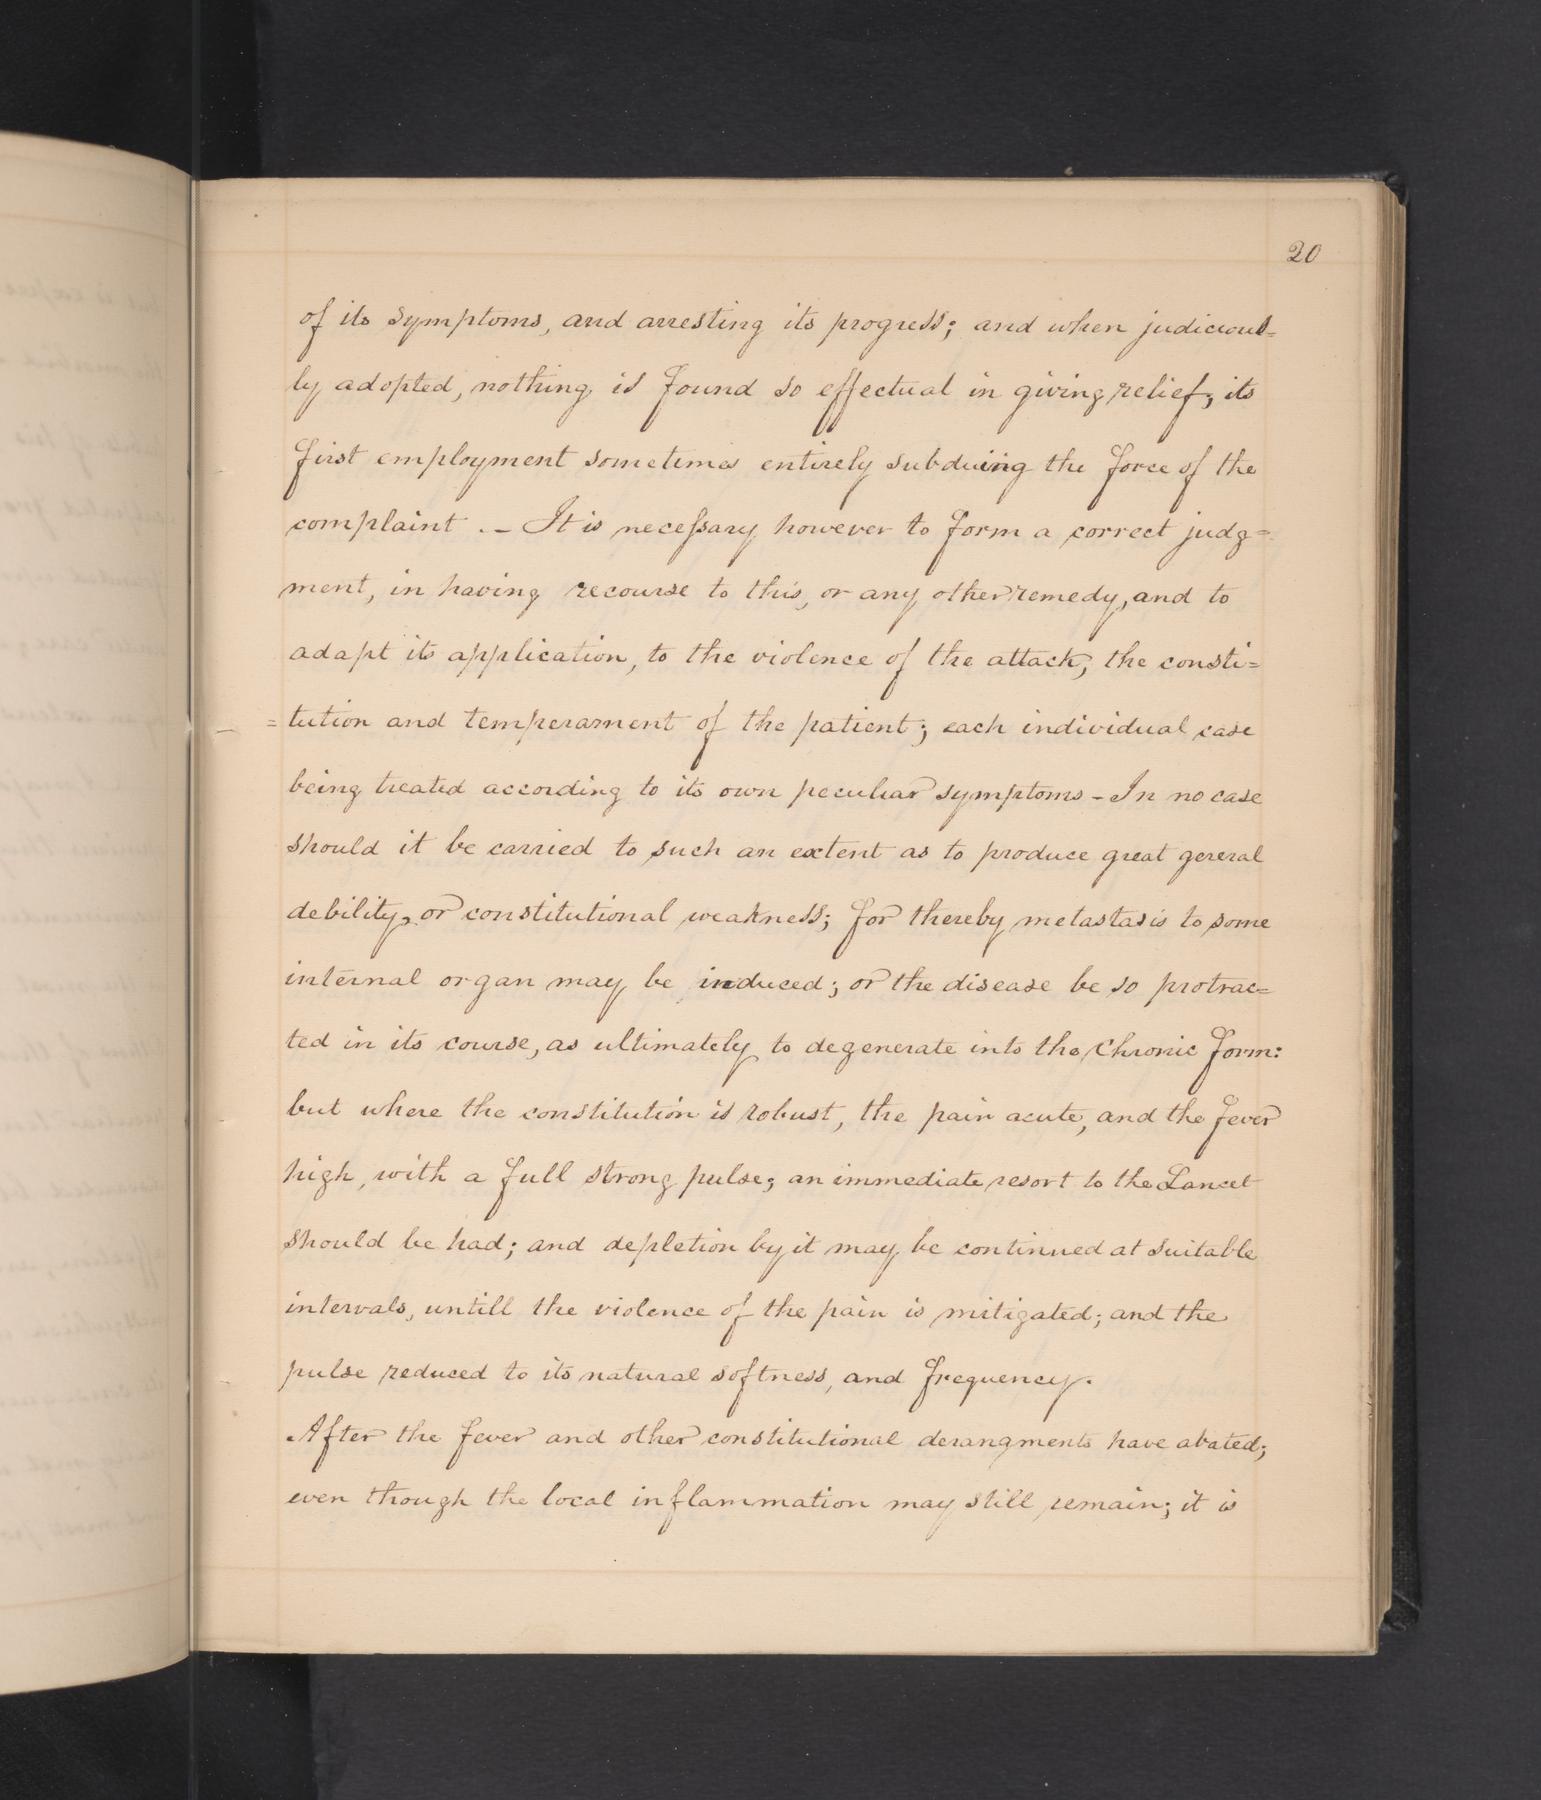 20
of its symptoms, and arresting its progress; and when judicious=
ly adopted, nothing is found so effectual in giving relief; its
first employment sometimes entirely subduing the force of the
complaint . – It is necessary however to form a correct judg=
ment, in having recourse to this, or any other remedy, and to
adapt its application, to the violence of the attack, the consti=
=tution and temperament of the patient; each individual case
being treated according to its own peculiar symptoms – In no case
should it be carried to such an extent as to produce great general
debility, or constitutional weakness; for thereby metastasis to some
internal organ may be induced; or the disease be so protrac=
ted in its course, as ultimately to degenerate into the Chronic form:
but where the constitution is robust, the pain acute, and the fever
high, with a full strong pulse; an immediate resort to the Lancet
should be had; and depletion by it may be continued at suitable
intervals, untill the violence of the pain is mitigated; and the
pulse reduced to its natural softness, and frequency.
After the fever and other constitutional derangments have abated;
even though the local inflammation may still remain; it is